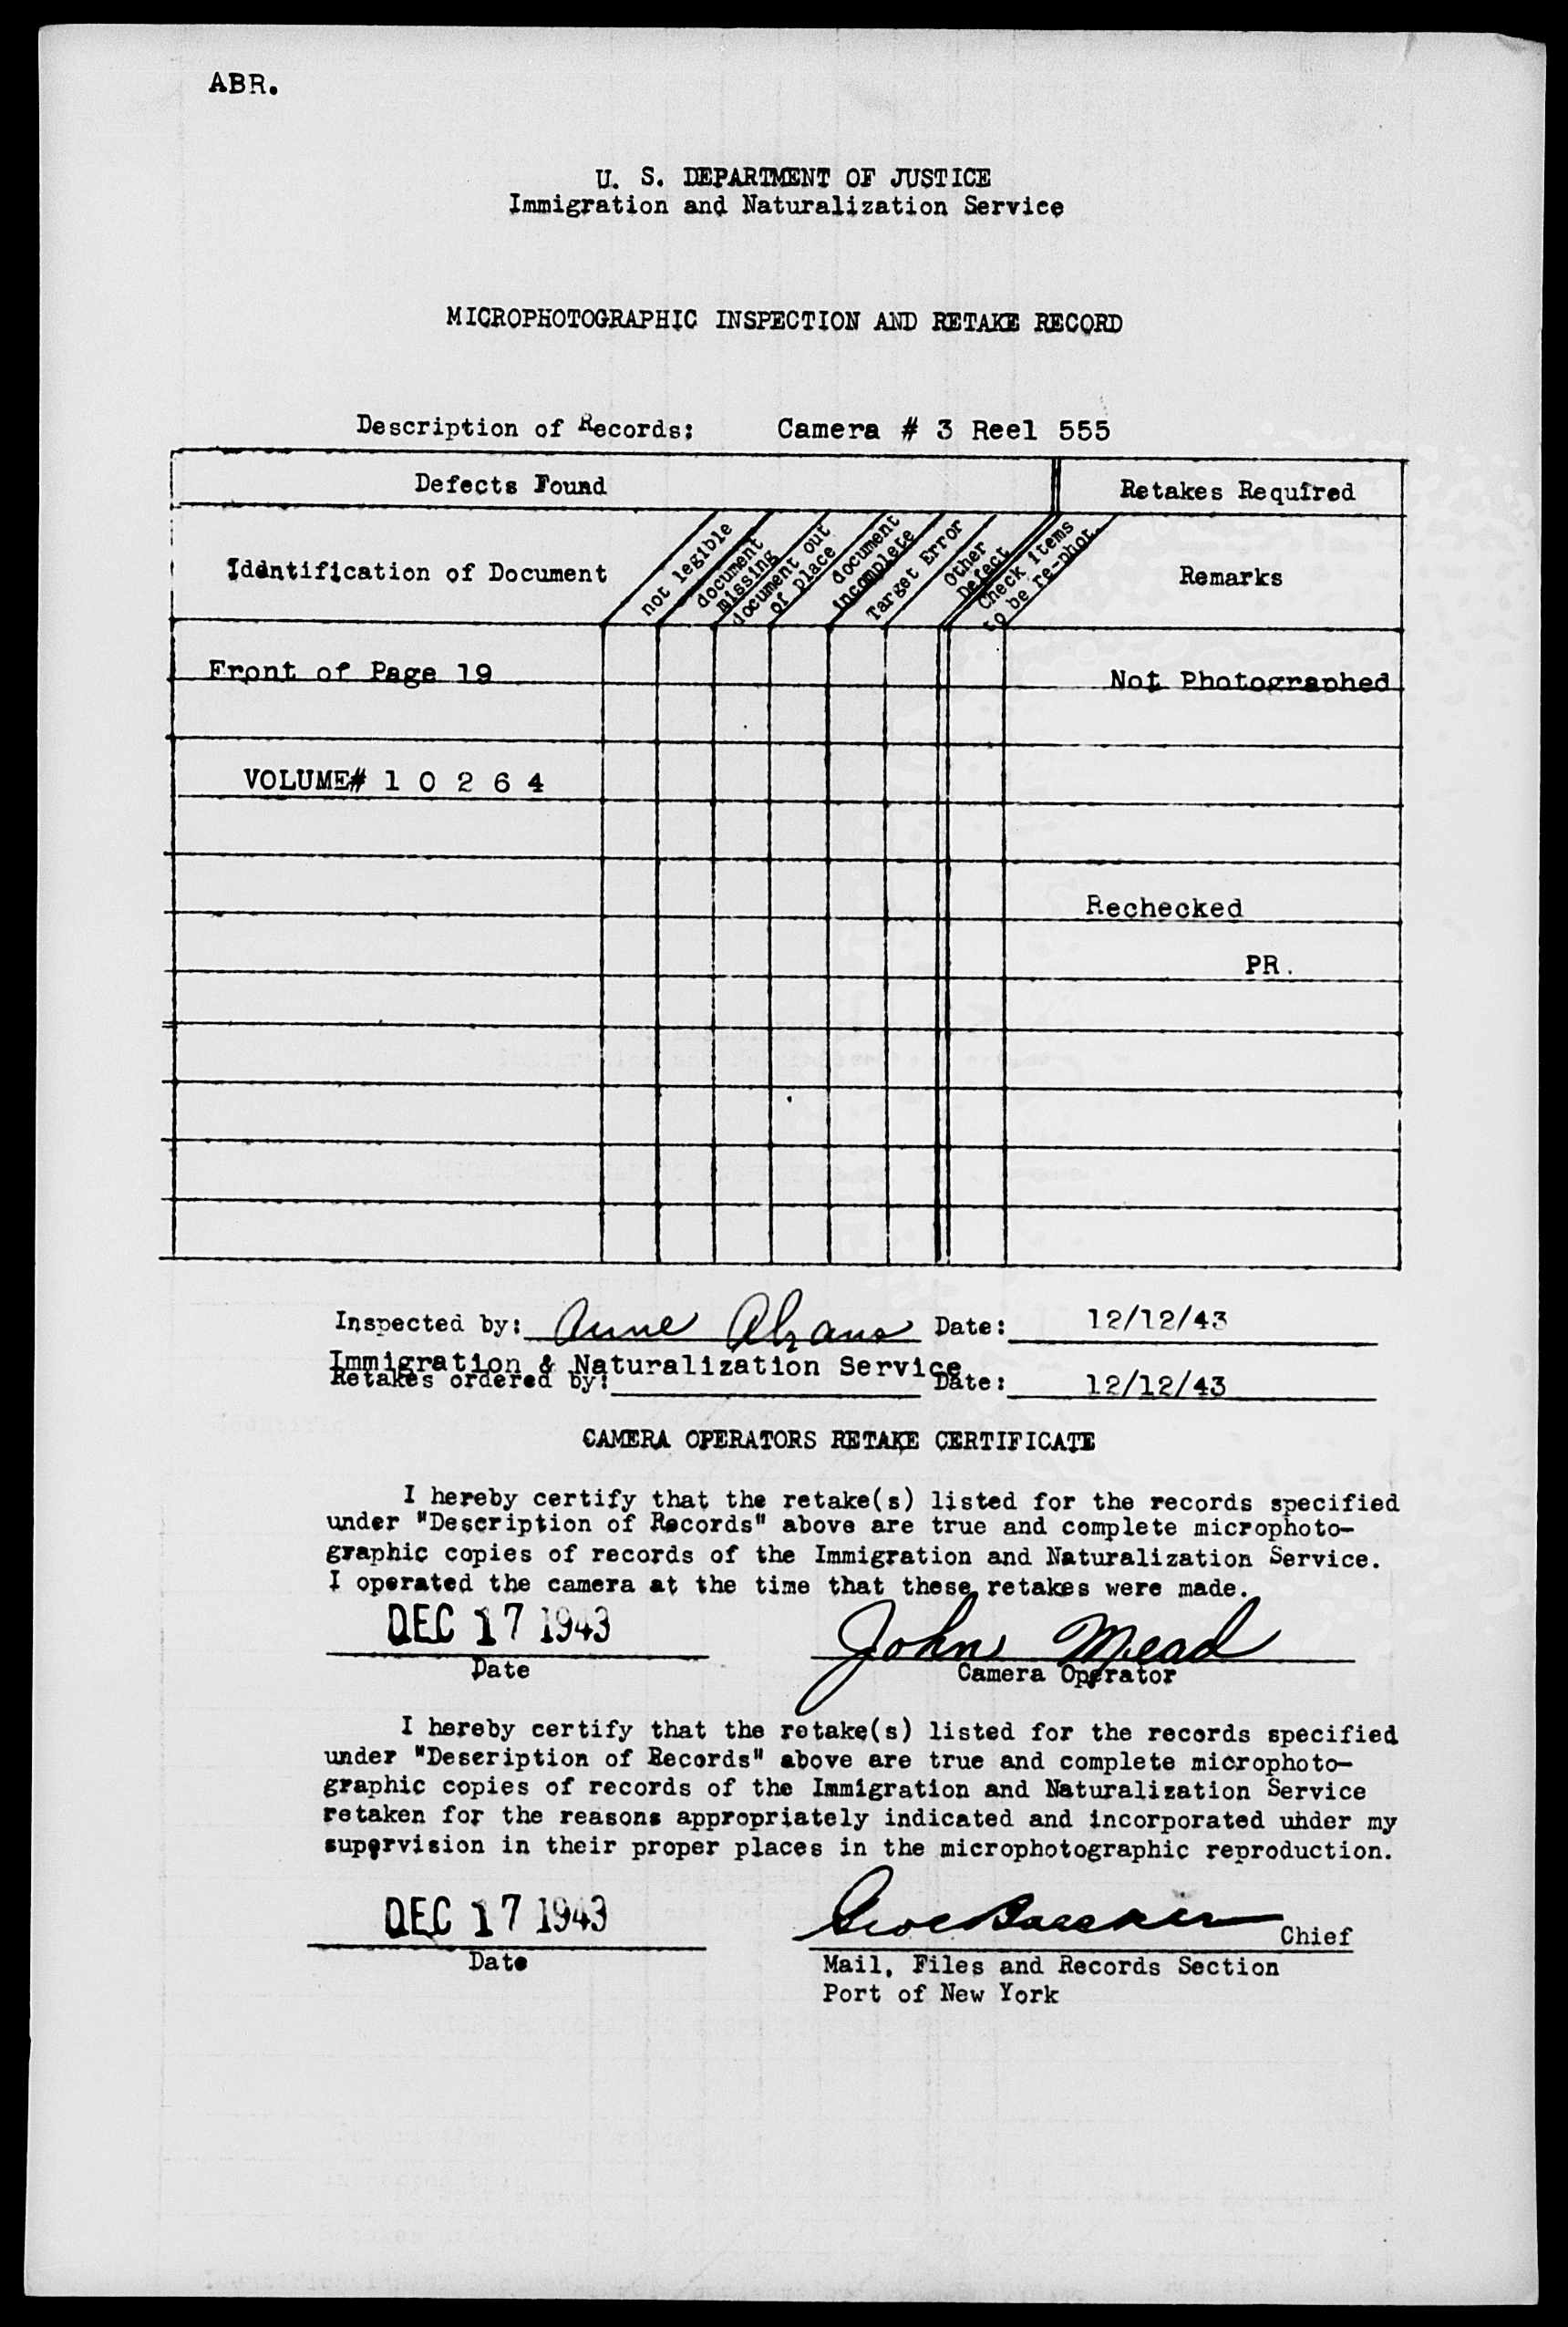 ABR.
U. S. DEPARTMENT OF JUSTICE
Immigration and Naturalization Service
MICROPHOTOGRAPHIC INSPECTION AND RETAKE RECORD
Description of Records: Camera # 3 Reel 555
Defects Found
Retakes Required
Iddntification of Document
not legible
document missing
document out of place
document incomplete
Target Error
Other Defect
Check items to be re-phot.
Remarks
Front of Page 19
Not Photographed
VOLUME# 1 0 2 6 4
Rechecked
PR.
Inspected by: Anne Date: 12/12/43
Immigration & Naturalization Service
Retakes ordered by: Date: 12/12/43
CAMERA OPERATORS RETAKE CERTIFICATE
I hereby certify that the retake(s) listed for the records specified
under "Description of Records" above are true and complete microphoto-
graphic copies of records of the Immigration and Naturalization Service.
I operated the camera at the time that these retakes were made.
DEC 17 1943 John Mead
Date Camera Operator
I hereby certify that the retake(s) listed for the records specified
under "Description of Records" above are true and complete microphoto-
graphic copies of records of the Immigration and Naturalization Service
retaken for the reasons appropriately indicated and incorporated under my
supervision in their proper places in the microphotographic reproduction.
DEC 17 1943 Chief
Date Mail, Files and Records Section
Port of New York